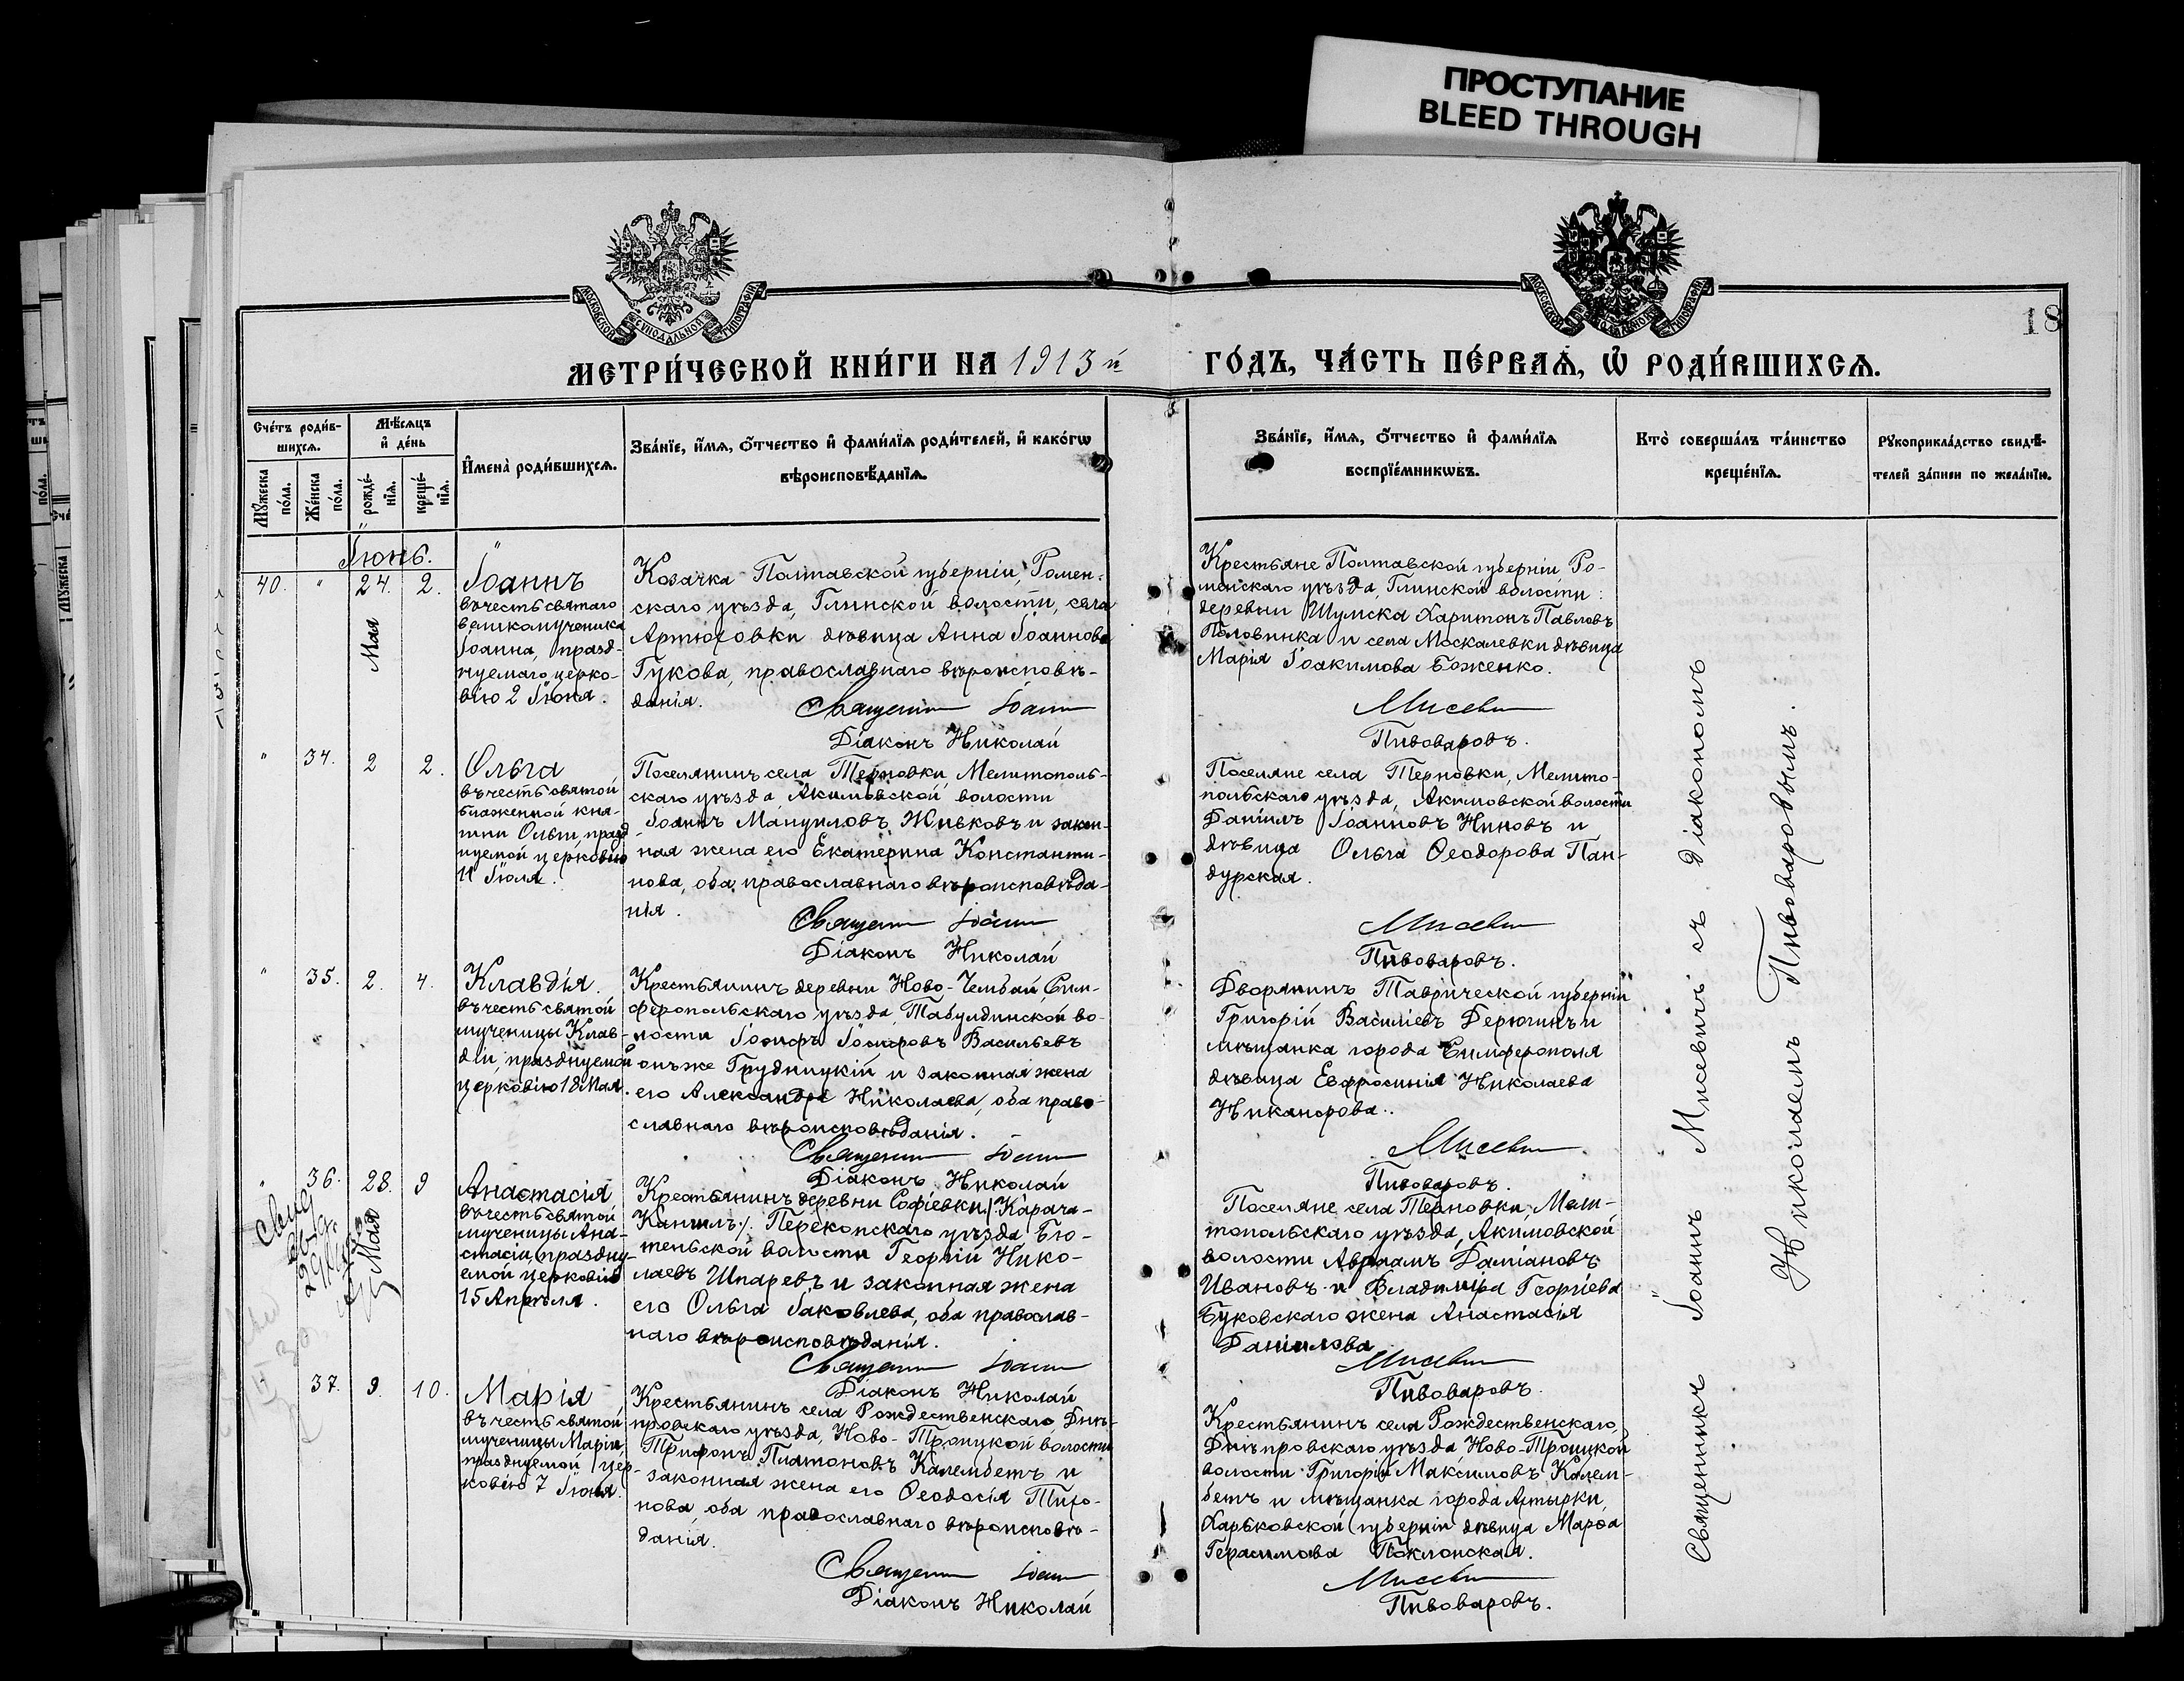 ПРОСТУПАНИЕ
BLEED THROUGH
18
МЕТРИ́ЧЕСКОЙ КНИ́ГИ НА 1913й ГО́ДЪ, ЧА́СТЬ ПЕ́РВАѦ, Ѿ РОДИ́ВШИХСѦ.
Сче́тъ роди́в-
шихсѧ.
Мѣ́сѧцъ
и де́нь
Мꙋ́жеска по́ла.
Же́нска по́ла.
рожде́-
нїѧ.
креще́-
нїѧ.
Имена̀ роди́вшихсѧ.
Зва́нїе, и́мѧ, ѻ́тчество и фами́лїѧ роди́телей, и како́гѡ
вѣроисповѣ́данїѧ.
Зва́нїе, и́мѧ, ѻ́тчество и фами́лїѧ
воспрїе́мникѡвъ.
Кто̀ соверша́лъ та́инство
креще́нїѧ.
Рꙋкоприкла́дство свидѣ́-
телей за́писи по жела́нїю.
Іюнь.
40. " 24. 2.
Мая
Іоаннъ
въ честь святаго
великомученика
Іоанна, празд-
нуемаго церко-
вію 2 Іюня.
Козачка Полтавской губерніи, Ромен-
скаго уѣзда, Глинской волости, села
Артюховки дѣвица Анна Іоаннова
Гукова, православнаго вѣроисповѣ-
данія.
Священникъ Іоаннъ
Діаконъ Николай
Крестьяне Полтавской губерніи, Ро-
менскаго уѣзда, Глинской волости:
деревни Шумска Харитонъ Павловъ
Половинка и села Москалевки дѣвица
Марія Іоакимова Боженко.
Мисевичъ
Пивоваровъ.
" 34. 2 2.
Ольга
въ честь святой
блаженной кня-
гини Ольги, празд-
нуемой церковію
11 Іюля.
Поселянинъ села Терновки, Мелитополь-
скаго уѣзда, Акимовской волости
Іоаннъ Мануиловъ Живковъ и закон-
ная жена его Екатерина Константи-
нова, оба православнаго вѣроисповѣда-
нія.
Священникъ Іоаннъ
Діаконъ Николай
Поселяне села Терновки, Мелито-
польскаго уѣзда, Акимовской волости
Даніилъ Іоанновъ Ниновъ и
дѣвица Ольга Ѳеодорова Пан-
дурская.
Мисевичъ
Пивоваровъ.
" 35. 2. 4.
Клавдія.
въ честь святой
мученицы Клав-
діи, празднуемой
церковію 18 Мая.
Крестьянинъ деревни Ново-Чембай, Сим-
феропольскаго уѣзда, Табулдинской во-
лости Іосифъ Іосифовъ Васильевъ
онъ же Грудницкій и законная жена
его Александра Николаева, оба право-
славнаго вѣроисповѣданія.
Священникъ Іоаннъ
Діаконъ Николай
Дворянинъ Таврической губерніи
Григорій Василіевъ Дерюгинъ и
мѣщанка города Симферополя
дѣвица Евфросинія Николаева
Никанорова.
Мисевичъ
Пивоваровъ.
" 36. 28. 9
Мая
Анастасія
въ честь святой
мученицы Ана-
стасіи, праздну-
емой церковію
15 Апрѣля.
Крестьянинъ деревни Софіевки /:Карача-
Кангилъ:/ Перекопскаго уѣзда Бю-
теньской волости Георгій Нико-
лаевъ Шпаревъ и законная жена
его Ольга Іаковлева, оба православ-
наго вѣроисповѣданія.
Священникъ Іоаннъ
Діаконъ Николай
Поселяне села Терновки, Мели-
топольскаго уѣзда, Акимовской
волости Авраамъ Даміановъ
Ивановъ и Владиміра Георгіева
Буковскаго жена Анастасія
Даніилова
Мисевичъ
Пивоваровъ.
37. 9. 10.
Марія
въ честь святой
мученицы Маріи,
празднуемой цер-
ковію 7 Іюня.
Крестьянинъ села Рождественскаго, Днѣ-
провскаго уѣзда, Ново-Троицкой волости
Трифонъ Платоновъ Калембетъ и
законная жена его Ѳеодосія Тихо-
нова, оба православнаго вѣроисповѣ-
данія.
Священникъ Іоаннъ
Діаконъ Николай
Крестьянинъ села Рождественскаго,
Днѣпровскаго уѣзда Ново-Троицкой
волости Григорій Максимовъ Калем-
бетъ и мѣщанка города Ахтырки,
Харьковской губерніи дѣвица Марѳа
Герасимова Поклонская.
Мисевичъ
Пивоваровъ.
Священникъ Іоаннъ Мисевичъ съ діакономъ
Николаемъ Пивоваровымъ.